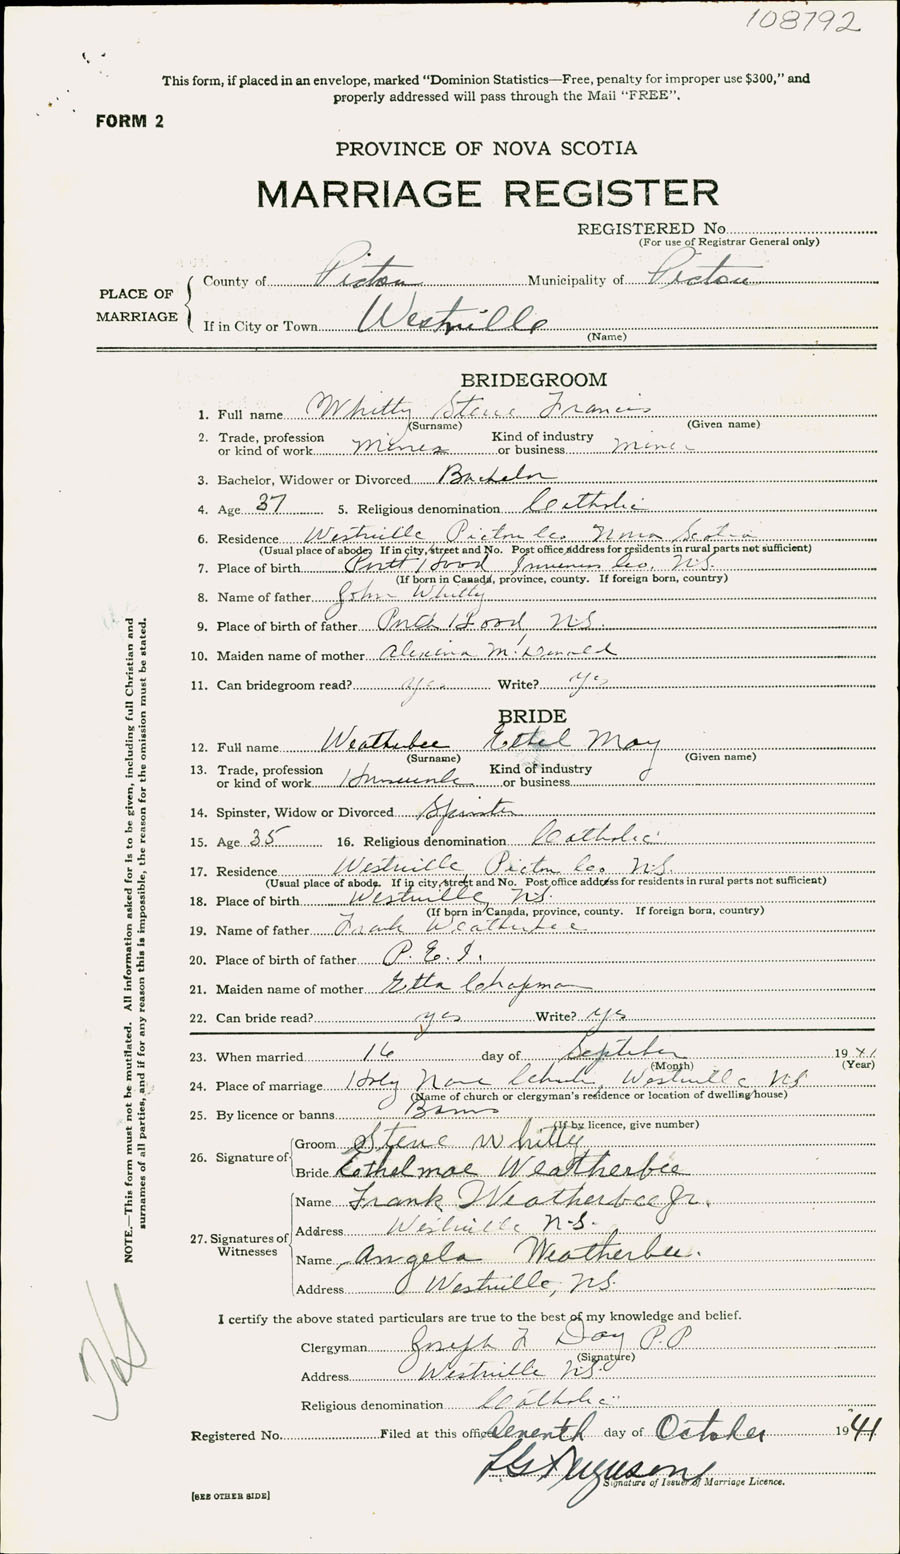 108792
This form, if placed in an envelope, marked "Dominion Statistics—Free, penalty for improper use $300," and
properly addressed will pass through the Mail "FREE".
FORM 2
PROVINCE OF NOVA SCOTIA
MARRIAGE REGISTER
REGISTERED No
(For use of Registrar General only)
PLACE OF MARRIAGE
County of Pictou Municipality of Pictou
If in City or Town Westville
(Name)
BRIDEGROOM
1. Full name Whitty Steve Francis
(Surname) (Given name)
2. Trade, profession or kind of work Miner Kind of industry or business
3. Bachelor, Widower or Divorced Bachelor
4. Age 37 5. Religious denomination Catholic
6. Residence Westville Pictou Co. Nova Scotia
(Usual place of abode. If in city, street and No. Post office address for residents in rural parts not sufficient)
7. Place of birth Port Hood Inverness Co. N.S.
(If born in Canada, province, county. If foreign born, country)
8. Name of father John Whitty
9. Place of birth of father Port Hood N.S.
10. Maiden name of mother McDonald
11. Can bridegroom read? yes Write? yes
BRIDE
12. Full name Weatherbee Ethel May
(Surname) (Given name)
13. Trade, profession or kind of work Kind of industry or business
14. Spinster, Widow or Divorced Spinster
15. Age 35 16. Religious denomination Catholic
17. Residence Westville Pictou Co. N.S.
(Usual place of abode. If in city, street and No. Post office address for residents in rural parts not sufficient)
18. Place of birth Westville, N.S.
(If born in Canada, province, county. If foreign born, country)
19. Name of father Frank Weatherbee
20. Place of birth of father P.E.I.
21. Maiden name of mother Etta Chapman
22. Can bride read? yes Write? yes
23. When married 16 day of September 1941
(Month) (Year)
24. Place of marriage Holy Name Church, Westville NS
(Name of church or clergyman's residence or location of dwelling house)
25. By licence or banns Banns
(If by licence, give number)
26. Signature of
Groom Steve Whitty
Bride Ethel mae Weatherbee
27. Signatures of Witnesses
Name Frank Weatherbee Jr.
Address Westville N.S.
Name Angela Weatherbee.
Address Westville, N.S.
I certify the above stated particulars are true to the best of my knowledge and belief.
Clergyman Joseph F Day P.P
(Signature)
Address Westville N.S.
Religious denomination Catholic
Registered No. Filed at this office Seventh day of October 1941
Ferguson
Signature of Issuer of Marriage Licence.
[SEE OTHER SIDE]
NOTE.—This form must not be mutilated. All information asked for is to be given, including full Christian and
surnames of all parties, and if for any reason this is impossible, the reason for the omission must be stated.